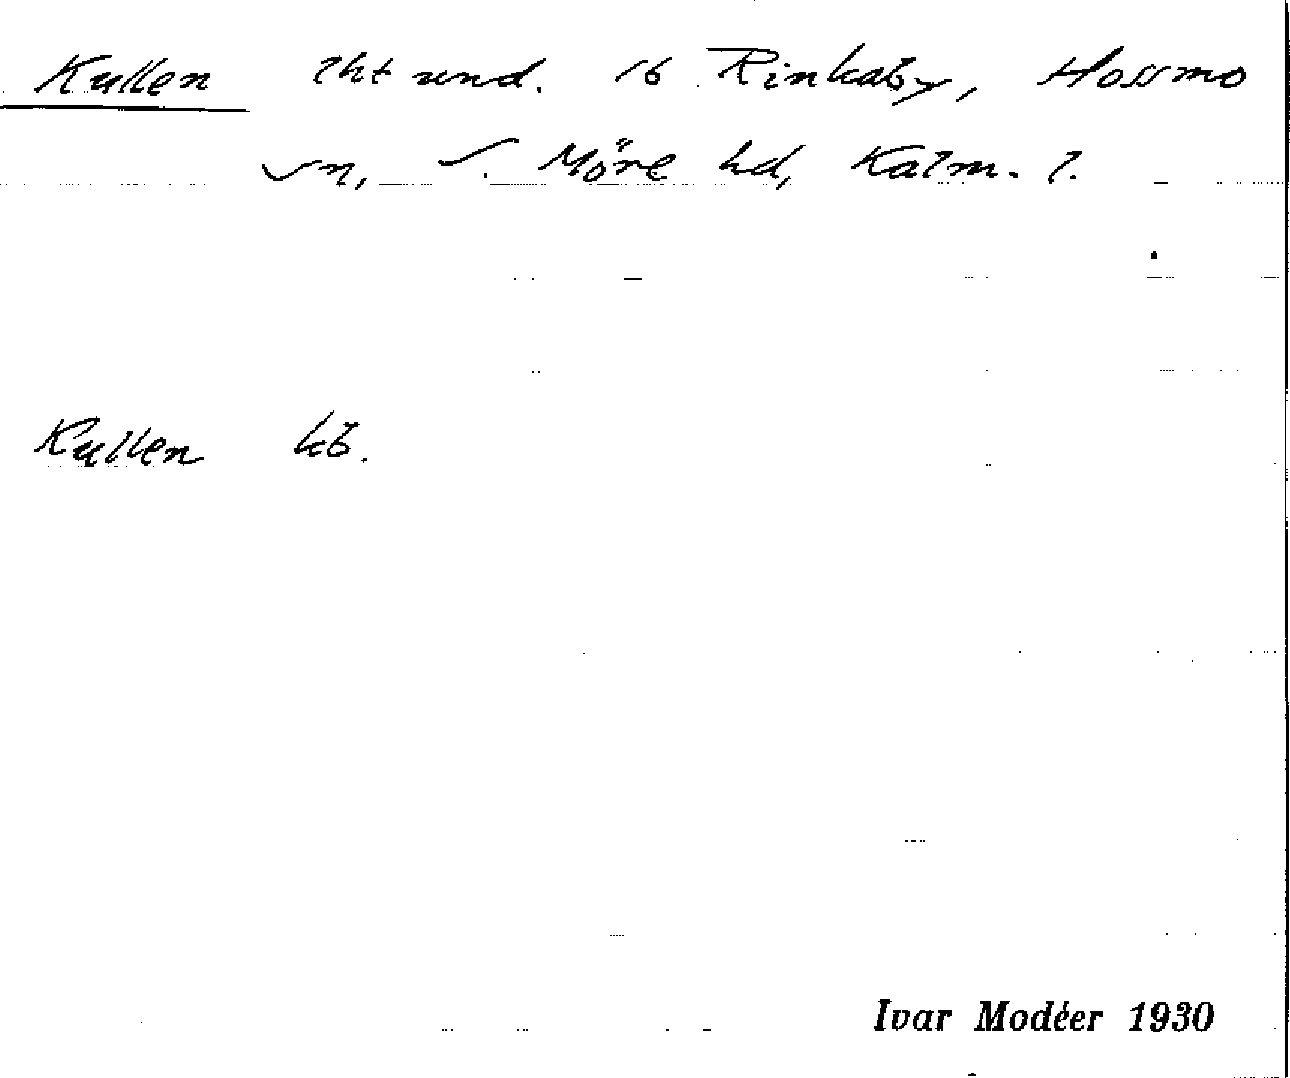 Kullen lht und. 16 Rinkaby, Hossmo
sn, S. Möre hd, Kalm. l.
Kullen kb.
Ivar Modéer 1930